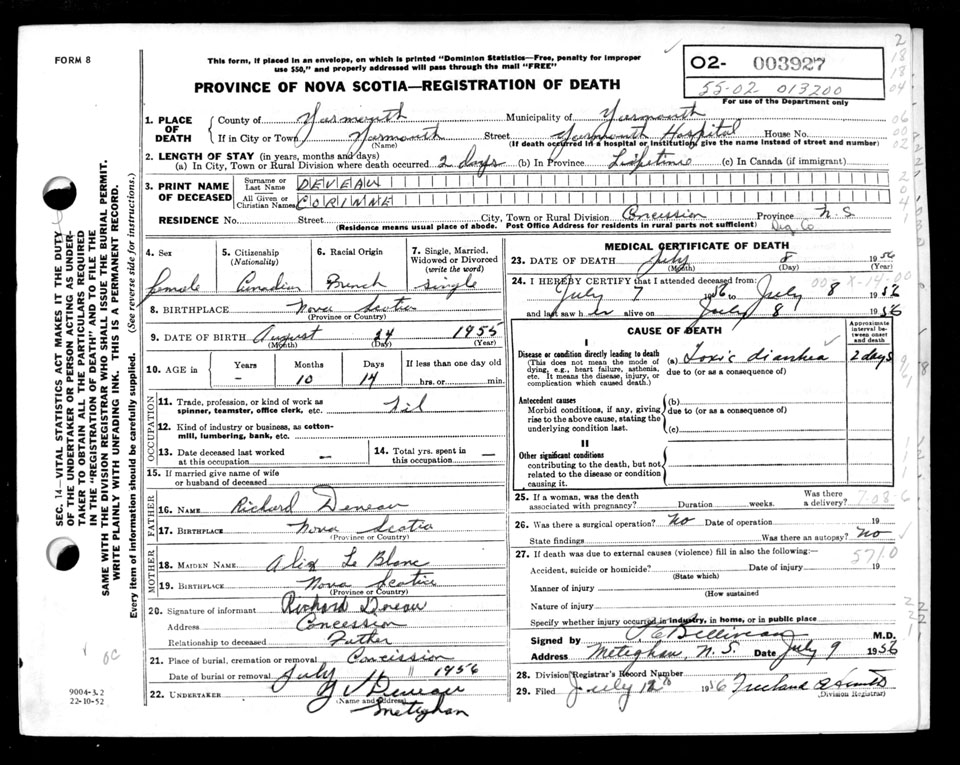 FORM 8
This form, if placed in an envelope, on which is printed "Dominion Statistics—Free, penalty for improper
use $50," and properly addressed will pass through the mail "FREE"
PROVINCE OF NOVA SCOTIA—REGISTRATION OF DEATH
O2- 003927
55-02 013200
For use of the Department only
1. PLACE OF DEATH
County of Yarmouth Municipality of Yarmouth
If in City or Town Yarmouth Street Yarmouth Hospital House No.
(Name) (If death occurred in a hospital or institution, give the name instead of street and number)
2. LENGTH OF STAY (in years, months and days)
(a) In City, Town or Rural Division where death occurred 2 days (b) In Province Lifetime (c) In Canada (if immigrant)
3. PRINT NAME OF DECEASED
Surname or Last Name DEVEAU
All Given or Christian Names CORINNE
RESIDENCE No. Street City, Town or Rural Division Concession Province N.S.
(Residence means usual place of abode. Post Office Address for residents in rural parts not sufficient) Dig Co
4. Sex
female
5. Citizenship (Nationality)
Canadian
6. Racial Origin
French
7. Single, Married, Widowed or Divorced (write the word)
single
8. BIRTHPLACE Nova Scotia
(Province or Country)
9. DATE OF BIRTH August 24 1955
(Month) (Day) (Year)
10. AGE in Years Months Days If less than one day old
– 10 14 hrs. or min.
OCCUPATION
11. Trade, profession, or kind of work as spinner, teamster, office clerk, etc. Nil
12. Kind of industry or business, as cotton-mill, lumbering, bank, etc.
13. Date deceased last worked at this occupation –
14. Total yrs. spent in this occupation –
15. If married give name of wife or husband of deceased
FATHER
16. NAME Richard Deveau
17. BIRTHPLACE Nova Scotia
(Province or Country)
MOTHER
18. MAIDEN NAME Le Blanc
19. BIRTHPLACE Nova Scotia
(Province or Country)
20. Signature of informant Richard Deveau
Address Concession
Relationship to deceased Father
21. Place of burial, cremation or removal Concession
Date of burial or removal July 1956
22. UNDERTAKER Deveau
(Name and Address)
Meteghan
MEDICAL CERTIFICATE OF DEATH
23. DATE OF DEATH July 8 1956
(Month) (Day) (Year)
24. I HEREBY CERTIFY that I attended deceased from:
July 7 1956 to July 8 1956
and last saw her alive on July 8 1956
CAUSE OF DEATH
Approximate interval between onset and death
I
Disease or condition directly leading to death (a) Toxic diarrhea 2 days
(This does not mean the mode of dying, e.g., heart failure, asthenia, etc. It means the disease, injury, or complication which caused death.)
due to (or as a consequence of)
Antecedent causes
Morbid conditions, if any, giving rise to the above cause, stating the underlying condition last.
(b)
due to (or as a consequence of)
(c)
II
Other significant conditions
contributing to the death, but not related to the disease or condition causing it.
25. If a woman, was the death associated with pregnancy? Duration weeks. Was there a delivery?
26. Was there a surgical operation? No Date of operation 19
State findings Was there an autopsy? No
27. If death was due to external causes (violence) fill in also the following:— 571.0
Accident, suicide or homicide? Date of injury 19
(State which)
Manner of injury
(How sustained
Nature of injury
Specify whether injury occurred in industry, in home, or in public place
Signed by M.D.
Address Meteghan, N.S. Date July 9 1956
28. Division Registrar's Record Number
29. Filed July 12 1956
(Division Registrar)
SEC. 14—VITAL STATISTICS ACT MAKES IT THE DUTY
OF THE UNDERTAKER OR PERSON ACTING AS UNDER-
TAKER TO OBTAIN ALL THE PARTICULARS REQUIRED
IN THE "REGISTRATION OF DEATH" AND TO FILE THE
SAME WITH THE DIVISION REGISTRAR WHO SHALL ISSUE THE BURIAL PERMIT.
WRITE PLAINLY WITH UNFADING INK. THIS IS A PERMANENT RECORD.
Every item of information should be carefully supplied. (See reverse side for instructions.)
9004-3.2
22-10-52